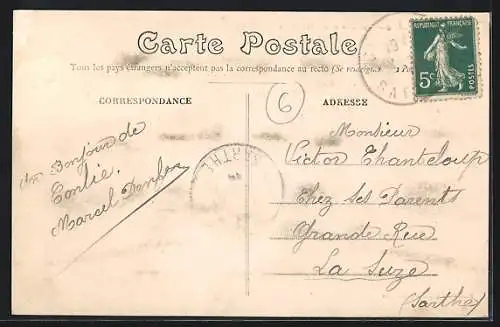 Carte Postale
Tous les pays étrangers n'acceptent pas la correspondance au recto (Se renseigner à la Poste)
CORRESPONDANCE
ADRESSE
REPUBLIQUE FRANÇAISE
5c
POSTES
6
SARTHE
Un Bonjour de
Conlie.
Marcel
Monsieur
Victor Chanteloup
Chez ses Parents
Grande Rue
La Suze
(Sarthe)